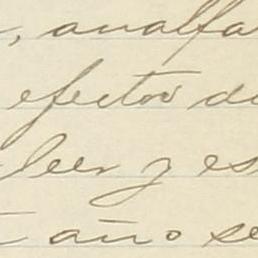 , analfa
efectos de
leer y es
año se